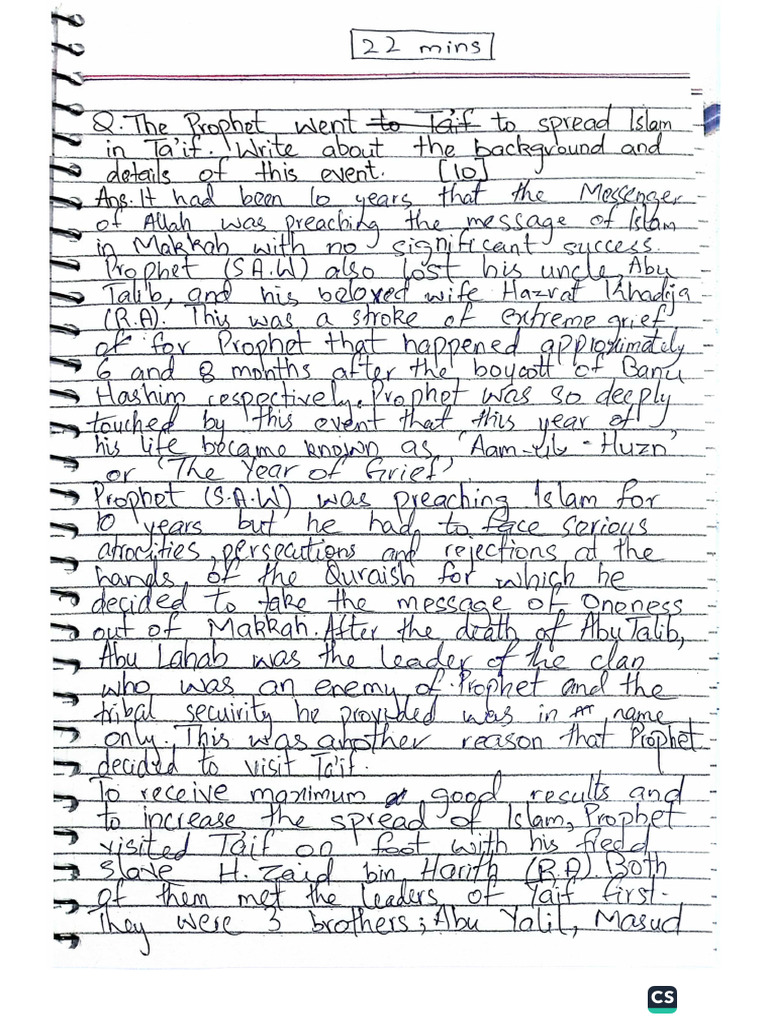 22 mins
Q. The Prophet went to Taif to spread Islam
in Ta'if. Write about the background and
details of this event. [10]
Ans. It had been 10 years that the Messenger
of Allah was preaching the message of Islam
in Makkah with no significant success.
Prophet (S.A.W) also lost his uncle, Abu
Talib, and his beloved wife Hazrat Khadija
(R.A). This was a stroke of extreme grief
of for Prophet that happened approximately
6 and 8 months after the boycott of Banu
Hashim respectively. Prophet was so deeply
touched by this event that this year of
his life became known as 'Aam-ul-Huzn'
or 'The Year of Grief'.
Prophet (S.A.W) was preaching Islam for
10 years but he had to face serious
atrocities, persecutions and rejections at the
hands of the Quraish for which he
decided to take the message of Oneness
out of Makkah. After the death of Abu Talib,
Abu Lahab was the leader of the clan
who was an enemy of Prophet and the
tribal secuirity he provided was in name
only. This was another reason that Prophet
decided to visit Ta'if.
To receive maximum good results and
to increase the spread of Islam, Prophet
visited Taif on foot with his freed
slave H. Zaid bin Harith (R.A). Both
of them met the leaders of Taif first.
They were 3 brothers; Abu Yalil, Masud
CS